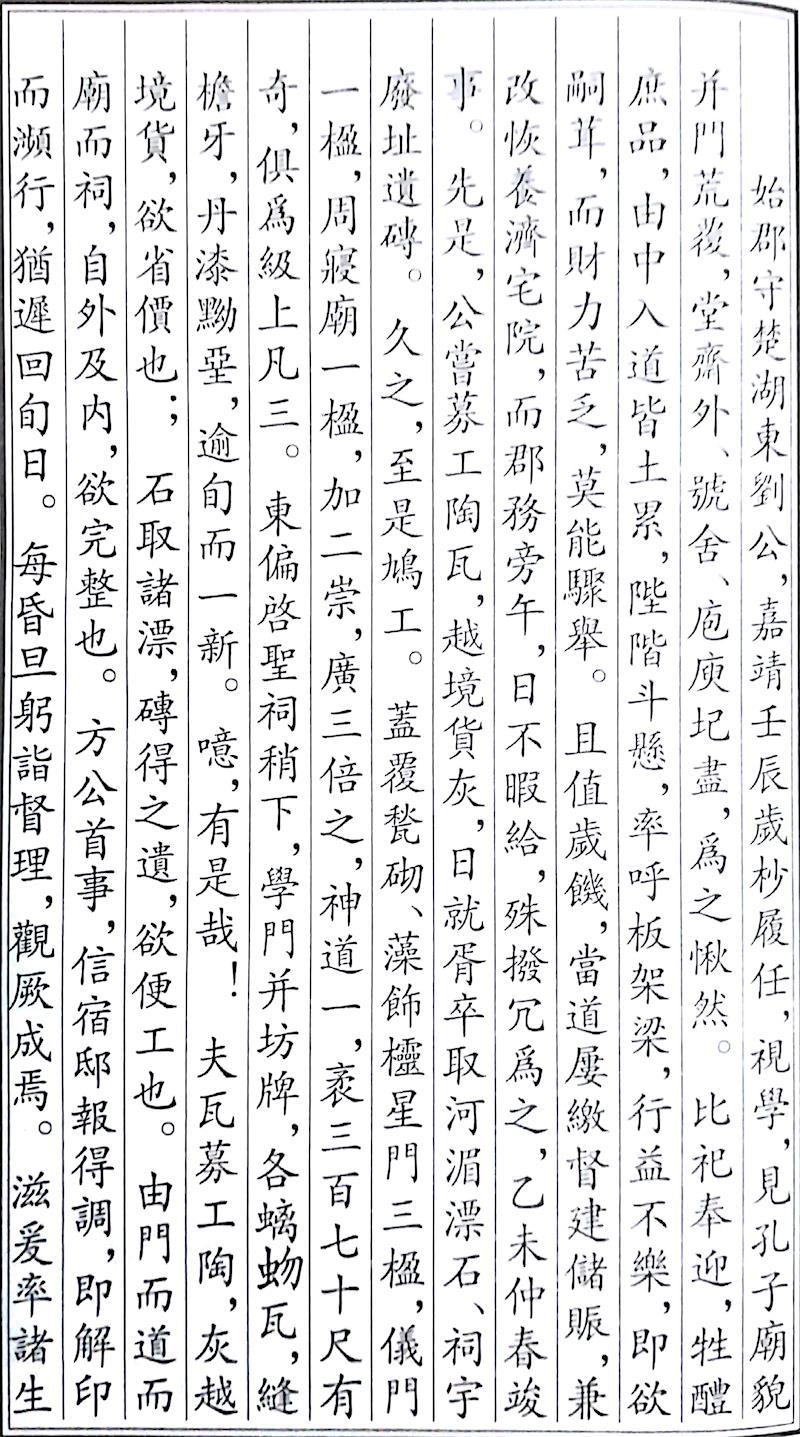 始郡守楚湖東劉公，嘉靖壬辰歲杪履任，視學，見孔子廟貌
并門荒茇，堂齋外、號舍、庖庾圮盡，爲之愀然。比祀奉迎，牲醴
庶品，由中入道皆土累，陛階斗懸，率呼板架梁，行益不樂，即欲
嗣葺，而財力苦乏，莫能驟舉。且值歲饑，當道屢繳督建儲賑，兼
改恢養濟宅院，而郡務旁午，日不暇給，殊撥冗爲之，乙未仲春竣
事。先是，公嘗募工陶瓦，越境貨灰，日就胥卒取河湄漂石、祠宇
廢址遺磚。久之，至是鳩工。蓋覆甃砌、藻飾櫺星門三楹，儀門
一楹，周寢廟一楹，加二崇，廣三倍之，神道一，袤三百七十尺有
奇，俱爲級上凡三。東偏啓聖祠稍下，學門并坊牌，各螭蚴瓦，縫
檐牙，丹漆黝堊，逾旬而一新。噫，有是哉！夫瓦募工陶，灰越
境貨，欲省價也；石取諸漂，磚得之遺，欲便工也。由門而道而
廟而祠，自外及内，欲完整也。方公首事，信宿邸報得調，即解印
而瀕行，猶遲回旬日。每昏旦躬詣督理，觀厥成焉。滋爰率諸生